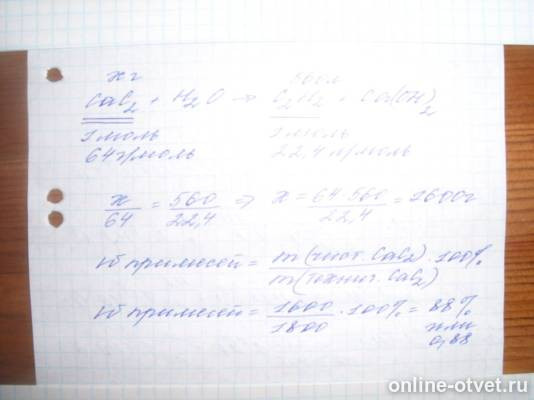 x г 560 л
CaC₂ + H₂O → C₂H₂ + Ca(OH)₂
1 моль 1 моль
64 г/моль 22,4 л/моль
x/64 = 560/22,4 ⇒ x = 64·560/22,4 = 1600 г
W примесей = m(чист. CaC₂)/m(технич. CaC₂) · 100%
W примесей = 1600/1800 · 100% = 88%
или
0,88
online-otvet.ru